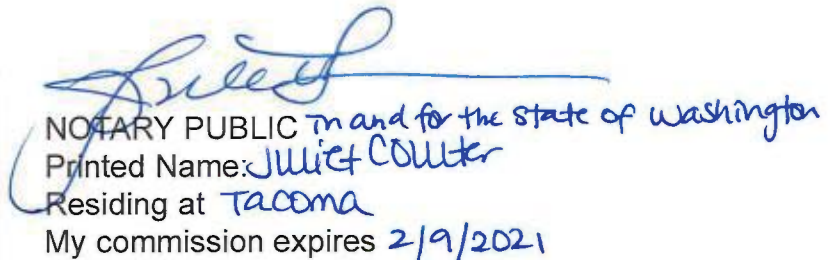 NOTARY PUBLIC in and for the state of Washington
Printed Name: Juliet Coulter
Residing at Tacoma
My commission expires 2/9/2021